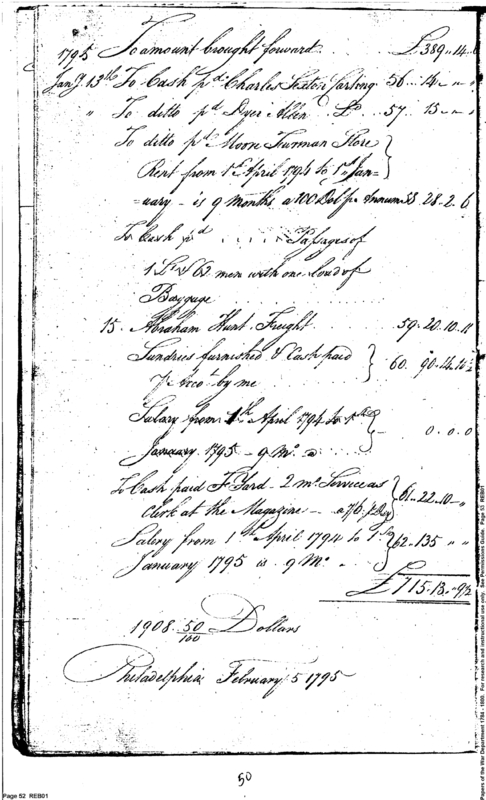 1795 To amount brought forward £389 " 14 "
Jany 13th To Cash pd Charles Carting 56 . 14 " "
" To ditto pd Dyer Allen Do 57 . 15 " "
To ditto pd Moore Furman Store
Rent from 1st April 1794 to 1st Jan-
=uary - is 9 months a 100 Dols pr Annum 58 28 . 2 . 6
To Cash pd . . . . . Passages of
1 Lt & 62 men with one load of
Baggage . . . . . .
15 . Abraham Hunt Freight 59 . 20 . 10 . 11
Sundries furnished & Cash paid
pr Acct by me 60 . 90 . 14 . 10 ½
Salary from 1st April 1794 to 1st
January 1795 - 9 Mo a - 0 . 0 . 0
To Cash paid F. Yard 2 mo Service as
Clerk at the Magazine - a 7/6 pr Day 61 . 22 . 10 "
Salery from 1st April 1794 to 1st 62 . 135 " "
January 1795 is 9 Mo
£715 . 13 . 9½
1908 . 50/100 Dollars
Philadelphia February 5 1795
50
Page 52 REB01
Papers of the War Department 1784 - 1800. For research and instructional use only. See Permissions Guide. Page 53 REB01